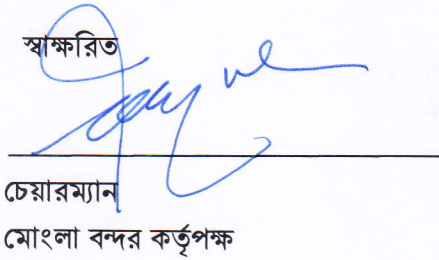 স্বাক্ষরিত
চেয়ারম্যান
মোংলা বন্দর কর্তৃপক্ষ